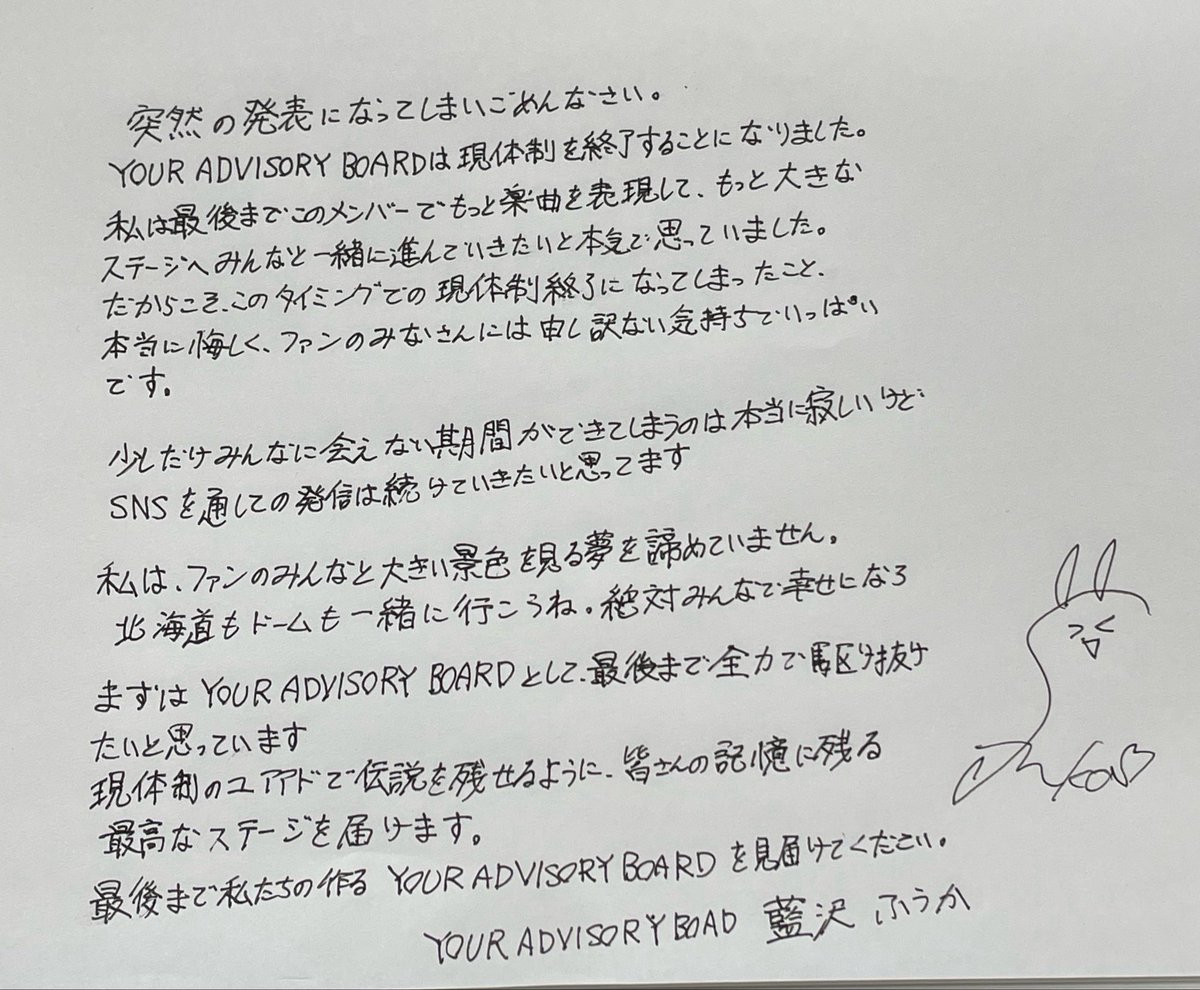 突然の発表になってしまいごめんなさい。
YOUR ADVISORY BOARDは現体制を終了することになりました。
私は最後までこのメンバーでもっと楽曲を表現して、もっと大きな
ステージへみんなと一緒に進んでいきたいと本気で思っていました。
だからこそ、このタイミングでの現体制終了になってしまったこと、
本当に悔しく、ファンのみなさんには申し訳ない気持ちでいっぱい
です。
少しだけみんなに会えない期間ができてしまうのは本当に寂しいけど
SNSを通しての発信は続けていきたいと思ってます
私は、ファンのみんなと大きい景色を見る夢を諦めていません。
北海道もドームも一緒に行こうね。絶対みんなで幸せになろ
まずはYOUR ADVISORY BOARDとして、最後まで全力で駆け抜け
たいと思っています
現体制のユアアドで伝説を残せるように、皆さんの記憶に残る
最高なステージを届けます。
最後まで私たちの作るYOUR ADVISORY BOARDを見届けてください。
YOUR ADVISORY BOAD 藍沢ふうか